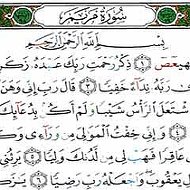 سُورَةُ مَرْيَمَ
بِسْمِ اللَّهِ الرَّحْمَٰنِ الرَّحِيمِ
ذِكْرُ رَحْمَتِ رَبِّكَ عَبْدَهُ زَكَرِ
رَبَّهُ نِدَاءً خَفِيًّا ۝ قَالَ رَبِّ إِنِّي وَهَنَ
شْتَعَلَ الرَّأْسُ شَيْبًا وَلَمْ أَكُنْ بِدُعَائِكَ
۝ وَإِنِّي خِفْتُ الْمَوَالِيَ مِنْ وَرَاءِي وَكَ
عَاقِرًا فَهَبْ لِي مِنْ لَدُنْكَ وَلِيًّا ۝ يَرِثُنِي
يَعْقُوبَ وَاجْعَلْهُ رَبِّ رَضِيًّا ۝ يَا زَكَرِ